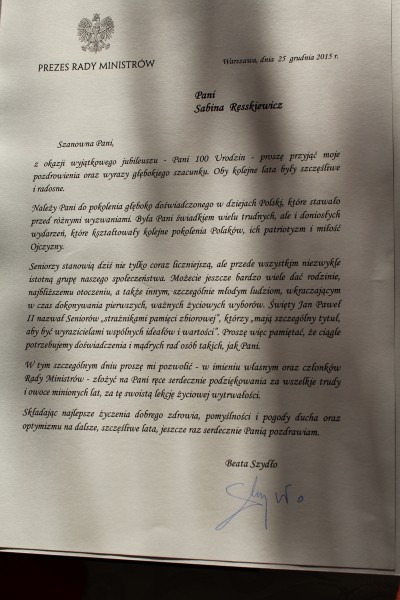 PREZES RADY MINISTRÓW
Warszawa, dnia 25 grudnia 2015 r.
Pani
Sabina Resskiewicz
Szanowna Pani,
z okazji wyjątkowego jubileuszu - Pani 100 Urodzin - proszę przyjąć moje
pozdrowienia oraz wyrazy głębokiego szacunku. Oby kolejne lata były szczęśliwe
i radosne.
Należy Pani do pokolenia głęboko doświadczonego w dziejach Polski, które stawało
przed różnymi wyzwaniami. Była Pani świadkiem wielu trudnych, ale i doniosłych
wydarzeń, które kształtowały kolejne pokolenia Polaków, ich patriotyzm i miłość
Ojczyzny.
Seniorzy stanowią dziś nie tylko coraz liczniejszą, ale przede wszystkim niezwykle
istotną grupę naszego społeczeństwa. Możecie jeszcze bardzo wiele dać rodzinie,
najbliższemu otoczeniu, a także innym, szczególnie młodym ludziom, wkraczającym
w czas dokonywania pierwszych, ważnych życiowych wyborów. Święty Jan Paweł
II nazwał Seniorów „strażnikami pamięci zbiorowej”, którzy „mają szczególny tytuł,
aby być wyrazicielami wspólnych ideałów i wartości”. Proszę więc pamiętać, że ciągle
potrzebujemy doświadczenia i mądrych rad osób takich, jak Pani.
W tym szczególnym dniu proszę mi pozwolić - w imieniu własnym oraz członków
Rady Ministrów - złożyć na Pani ręce serdecznie podziękowania za wszelkie trudy
i owoce minionych lat, za tę swoistą lekcję życiowej wytrwałości.
Składając najlepsze życzenia dobrego zdrowia, pomyślności i pogody ducha oraz
optymizmu na dalsze, szczęśliwe lata, jeszcze raz serdecznie Panią pozdrawiam.
Beata Szydło
Szydło